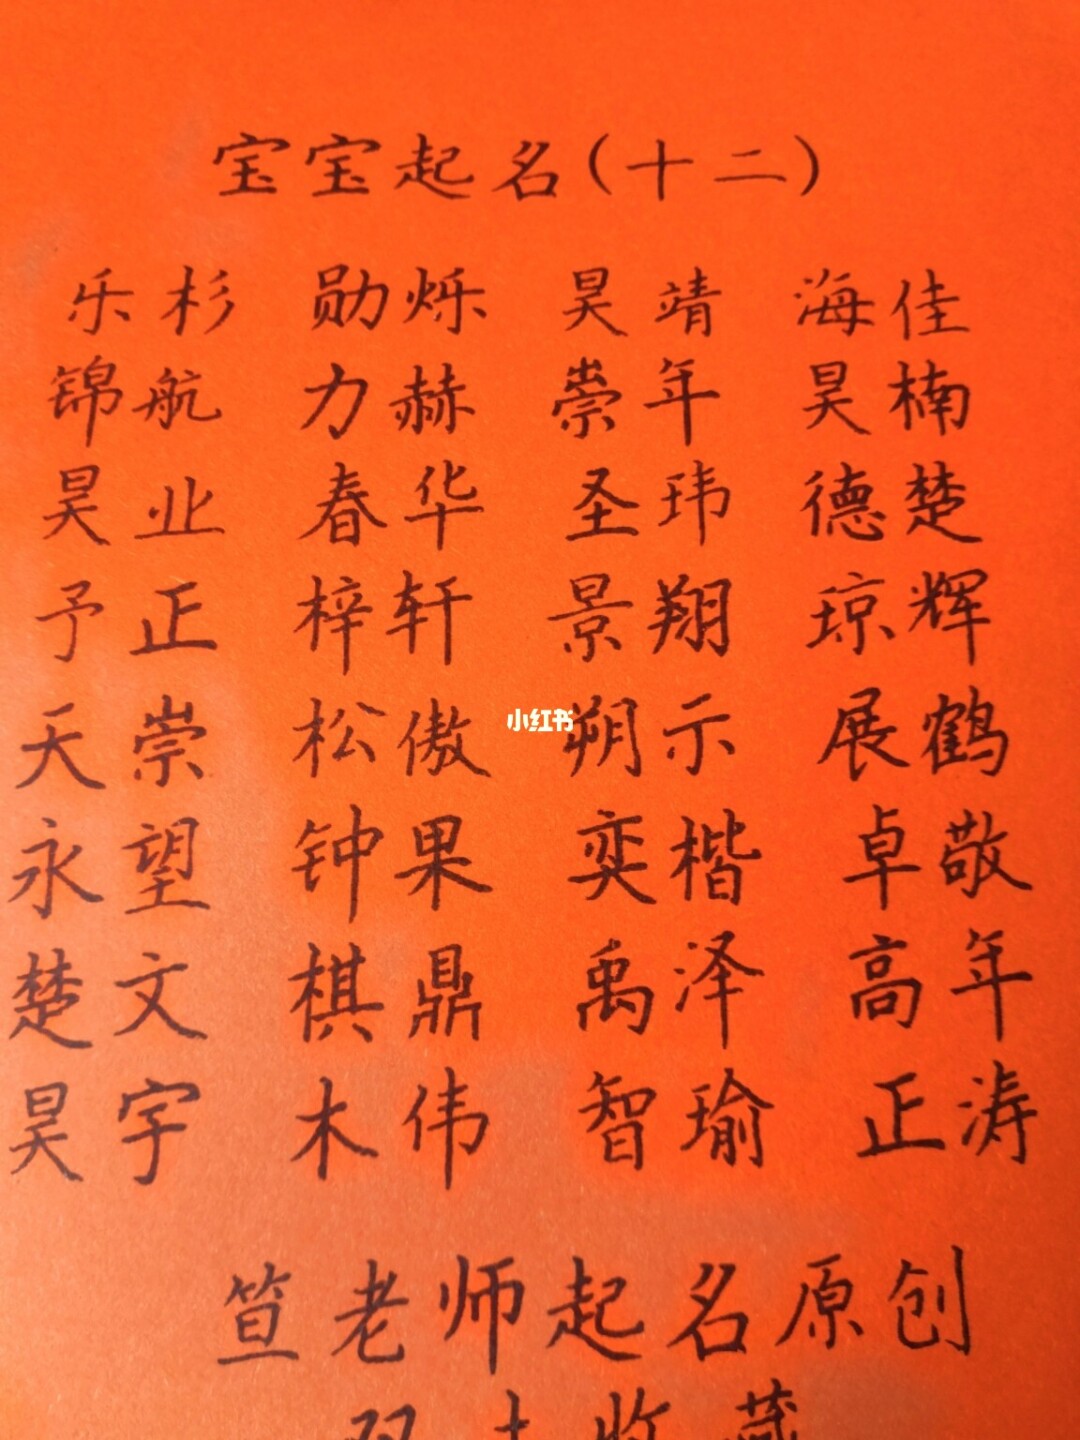 宝宝起名(十二)
乐杉 勋烁 昊靖 海佳
锦航 力赫 崇年 昊楠
昊业 春华 圣玮 德楚
予正 梓轩 景翔 琼辉
天崇 松傲 朔示 展鹤
小红书
永望 钟果 奕楷 卓敬
楚文 棋鼎 禹泽 高年
昊宇 木伟 智瑜 正涛
笪老师起名原创
收藏